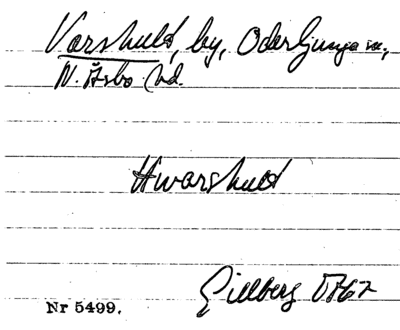 Varshult, by, Oderljunga sn,
N. Åsbo hd.
Hwarshult
Gillberg
Nr 5499.